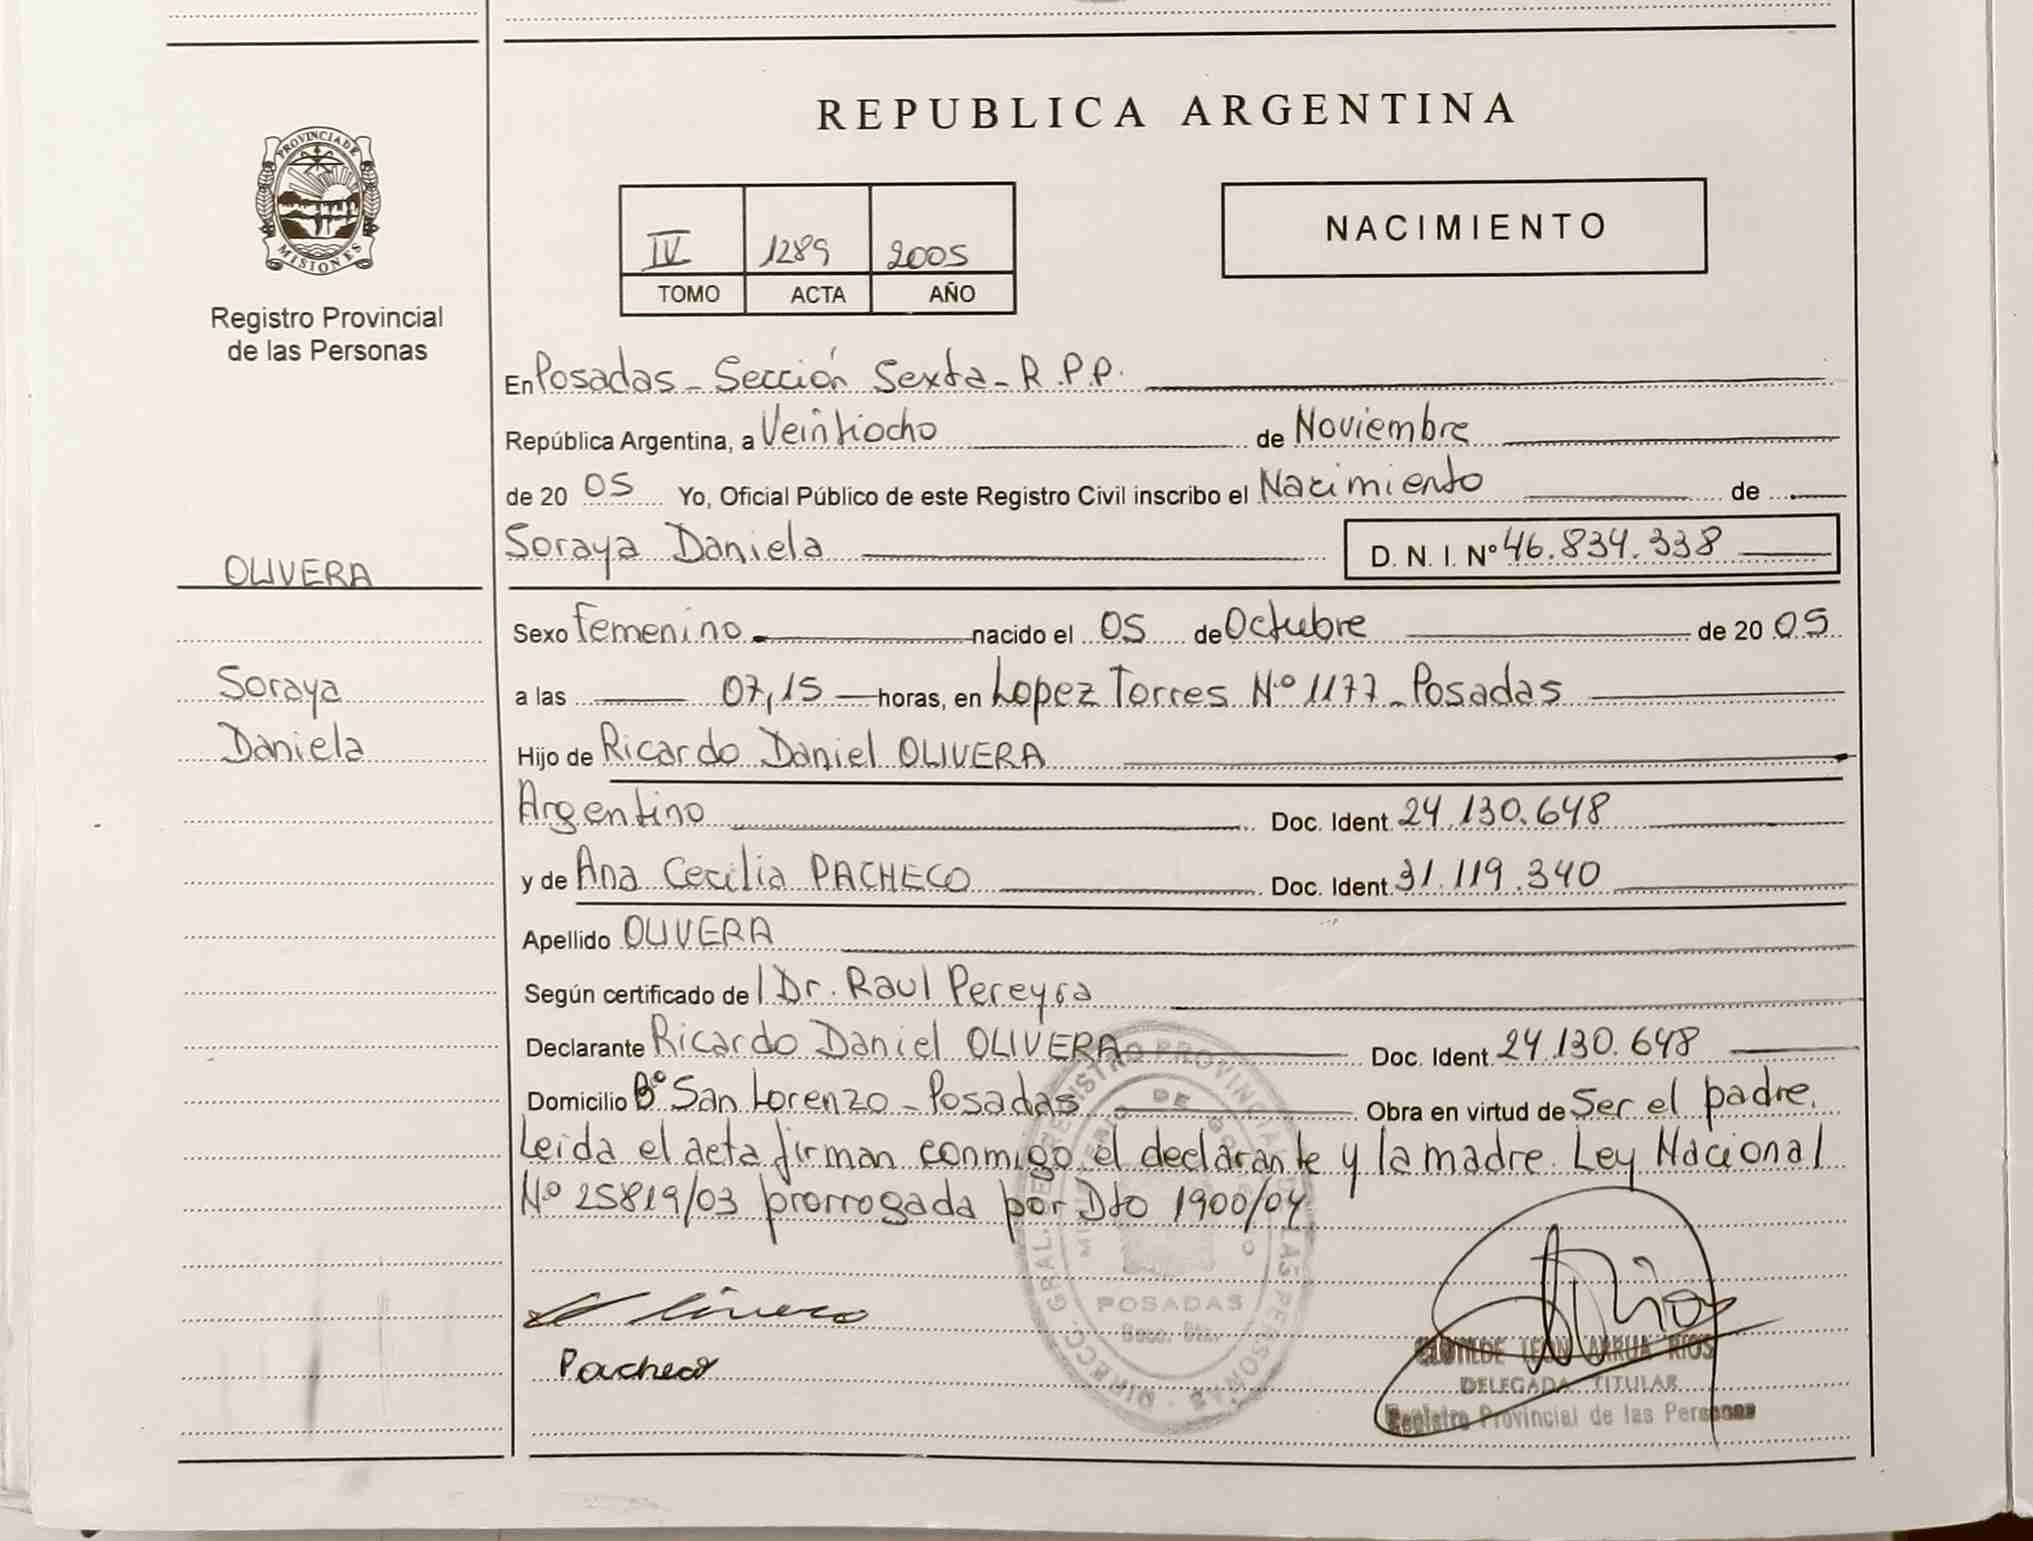 REPUBLICA ARGENTINA
PROVINCIA DE
MISIONES
Registro Provincial
de las Personas
IV 1289 2005
TOMO ACTA AÑO
NACIMIENTO
En Posadas - Sección Sexta - R.P.P.
República Argentina, a Veintiocho de Noviembre
de 20 05 Yo, Oficial Público de este Registro Civil inscribo el Nacimiento de
Soraya Daniela D. N. I. Nº 46.834.338
OLIVERA
Sexo Femenino nacido el 05 de Octubre de 20 05
Soraya
a las 07,15 horas, en Lopez Torres Nº 1177 - Posadas
Daniela
Hijo de Ricardo Daniel OLIVERA
Argentino Doc. Ident. 24.130.648
y de Ana Cecilia PACHECO Doc. Ident. 31.119.340
Apellido OLIVERA
Según certificado de l Dr. Raul Pereyra
Declarante Ricardo Daniel OLIVERA Doc. Ident. 24.130.648
Domicilio Bº San Lorenzo - Posadas Obra en virtud de Ser el padre.
Leida el acta firman conmigo el declarante y la madre. Ley Nacional
Nº 25819/03 prorrogada por Dto 1900/04
DIRECC. GRAL. DE REGISTRO PROVINCIAL DE LAS PERSONAS
MINISTERIO DE GOBIERNO
POSADAS
Olivera
Pacheco
Rios
CLOTILDE LEON ARRUA RIOS
DELEGADA TITULAR
Registro Provincial de las Personas